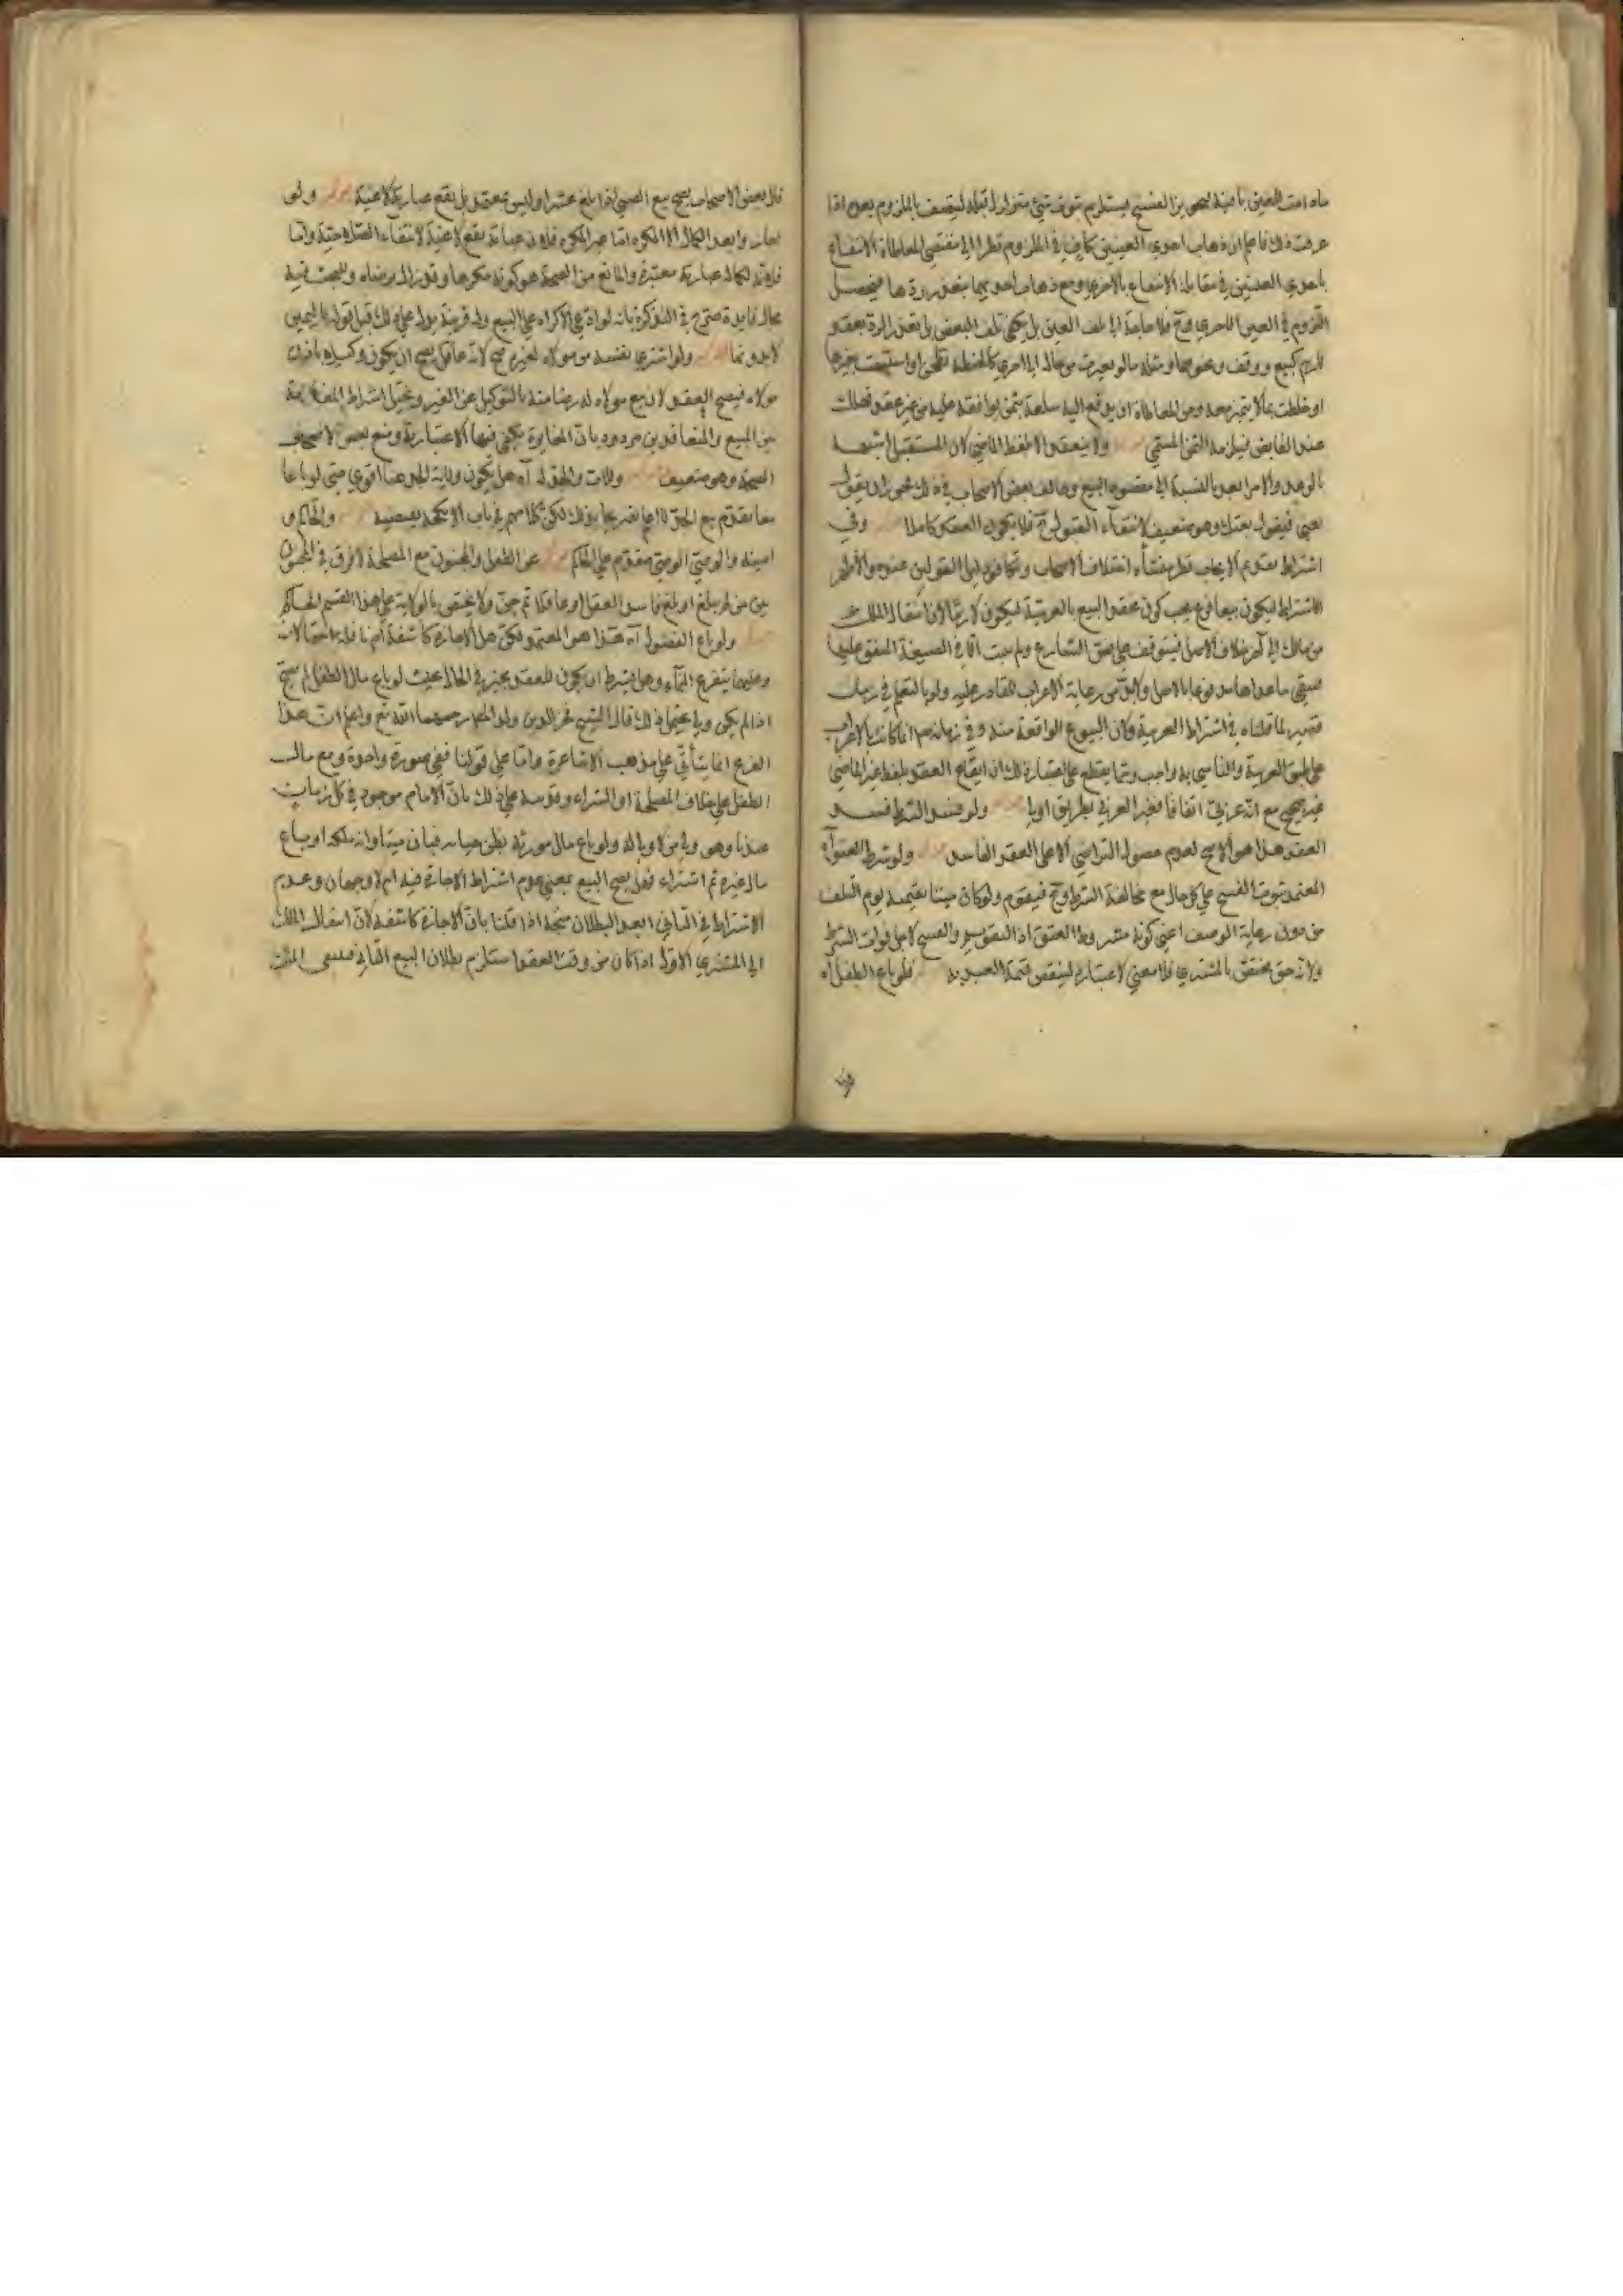 ما دامت العين باقية فيجوز الفسخ يستلزم ثبوت شيء متزلزل قبله ليتصف باللزوم بعده اذا
عرفت ذلك فاعلم ان ذهاب احدى العينين كاف في اللزوم نظرا الى مقتضى المعاطاة الانتفاع
باحدى العينين في مقابلة الانتفاع بالاخرى ومع ذهاب احديهما يتعذر ردها فيحصل
اللزوم في العين الاخرى وح فلا حاجة الى تلف العين بل يكفي تلف البعض بل تعذر الرد بعقد
لازم كبيع ووقف ونحوهما ومثله ما لو تغيرت من حالة الى اخرى كالحنطة تطحن او اشتبهت بغيرها
او خلطت بما لا يتميز معه ومن المعاطاة ان يدفع اليه سلعة بثمن يوافقه عليه من غير عقد فتهلك
عند القابض فيلزمه الثمن المسمى ولا ينعقد الا بلفظ الماضي لان المستقبل اشبه
بالوعد والامر بعيد بالنسبة الى مقصود البيع وخالف بعض الاصحاب في ذلك فجوز ان يقول
بعني فيقول بعتك وهو ضعيف لانتفاء القبول ح فلا يكون العقد كاملا وفي
اشتراط تقديم الايجاب نظر منشأه اختلاف الاصحاب وتكافؤ دليل القولين عنده والاظهر
الاشتراط ليكون بيعا فرع يجب كون عقد البيع بالعربية ليكون لازما لان انتقال الملك
من مالك الى آخر خلاف الاصل فيتوقف على نص الشارع ولم يثبت الا في الصيغة المتفق عليها
فيبقى ما عداها مدفوعا بالاصل ولا بد من رعاية الاعراب للقادر عليه ولو بالتعلم في زمان
قصير لما قلناه في اشتراط العربية وكان البيوع الواقعة منه وفي زمانهم انما كانت بالاعراب
على طبق العربية والتأسي به واجب ومما يقطع على اعتبار ذلك ان ايقاع العقد بلفظ غير الماضي
غير صحيح مع انه عربي اتفاقا فغير العربي بطريق اولى ولو فسد الشرط فسد
العقد هذا هو الاصح لعدم حصول التراضي الا على العقد الفاسد ولو شرط العتق آه
المعتمد ثبوت الفسخ على كل حال مع مخالفة الشرط وح فيقوم ولو كان ميتا بقيمته يوم التلف
من دون رعاية الوصف اعني كونه مشروط العتق اذ التقويم والفسخ لاجل فوات الشرط
ولانه حق يختص بالمشتري فلا معنى لاعتباره لينقص قيمة العبد به فلو باع الطفل آه
قال بعض الاصحاب يصح بيع الصبي اذا بلغ عشرا وليس بمعتمد بل يقع عبارته لاغية ولو
اجاز وا بعد الكمال الا المكره اما غير المكره فلان عبارته يقع لاغية لانتفاء الصلاحية واما
فلانه لكماله عبارته معتبرة والمانع من الصحة هو كونه مكرها وقد زال برضاه وللبحث فيه
مجال فايدة صرح في التذكرة بانه لو ادعى الاكراه على البيع وله قرينة يدل عليه ذلك قبل قوله باليمين
لا بدونها ولو اشترى نفسه من مولاه لغيره صح لانه عاقل يصح ان يكون وكيلا باذن
مولاه فيصح العقد لان بيع مولاه له رضا منه بالتوكيل عن الغير ويحتمل اشتراط المغايرة
بين المبيع والمتعاقدين مردود بان المغايرة يكفي فيها الاعتبارية ومنع بعض الاصحاب
الصحة وهو ضعيف وللاب والجد له آه هل يكون ولاية الجد هنا اقوى حتى لو باعا
معا يقدم بيع الجد لا اعلم تصريحا بذلك لكن كلامهم في باب النكاح يقتضيه والحاكم و
امينه والوصي الوصي مقدم على الحاكم عن الطفل والمجنون مع المصلحة لا فرق في المجنون
بين من لم يبلغ او بلغ فاسد العقل او عاقلا ثم جن ولا يختص بالولاية على هذا القسم الحاكم
ولو باع الفضولي آه هذا هو المعتمد ولكن هل الاجازة كاشفة ام ناقلة احتمالان
وعليهما يتفرع النماء وهل يشترط ان يكون للعقد مجيز في الحال بحيث لو باع مال الطفل لم يصح
اذا لم يكن ولي يحتمل ذلك قال الشيخ فخر الدين ولد المصنف رحمهما الله تع واعلم ان هذا
الفرع انما يتأتى على مذهب الاشاعرة واما على قولنا ففي صورة واحدة وبيع مال
الطفل على خلاف المصلحة او الشراء وقدمه على ذلك بان الامام موجود في كل زمان
عندنا وهو ولي من لا ولي له ولو باع مال مورثه بظن حياته فبان ميتا وانه ملكه او باع
مال غيره ثم اشتراه فهل يصح البيع بمعنى عدم اشتراط الاجازة فيه ام لا وجهان وعدم
الاشتراط في الثاني ابعد البطلان متجه اذا قلنا بان الاجازة كاشفة لان انتقال الملك
الى المشتري الاول اذا كان من وقت العقد استلزم بطلان البيع الثاني فيبقى الملك